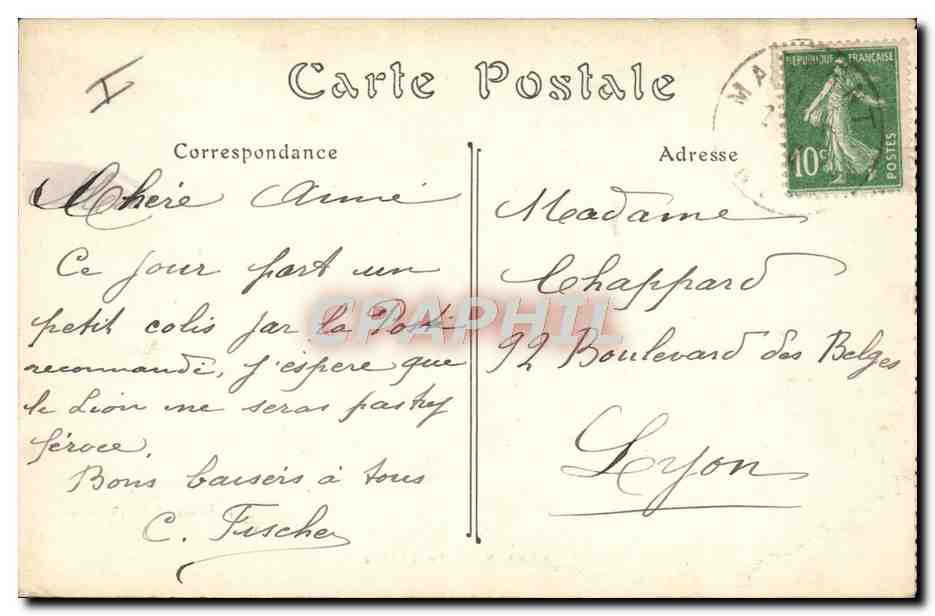 Carte Postale
RÉPUBLIQUE FRANÇAISE
10c
POSTES
MA
Correspondance
Chére Aimé
Ce jour part un
petit colis par la Post
recommandé, j'espere que
le Lion ne seras pas trop
féroce.
Bons baisers à tous
C. Fischer
Adresse
Madame
Chappard
92 Boulevard des Belges
Lyon
CPAPHIL